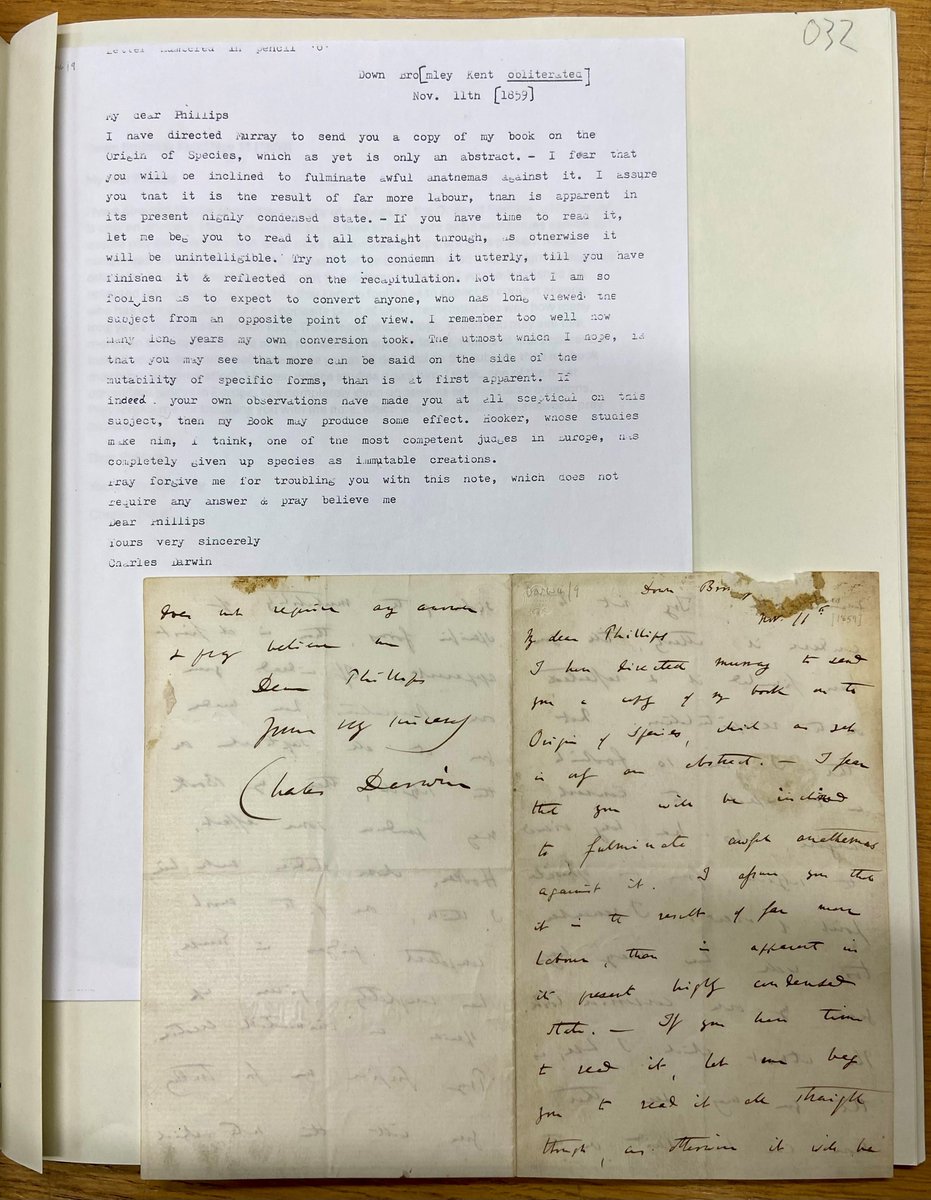 032
letter numbered in pencil '6'
Down Bro[mley Kent obliterated]
Nov. 11th [1859]
My dear Phillips
I have directed Murray to send you a copy of my book on the
Origin of Species, which as yet is only an abstract. – I fear that
you will be inclined to fulminate awful anatnemas against it. I assure
you tnat it is the result of far more labour, tnan is apparent in
its present nignly condensed state. – If you have time to read it,
let me beg you to read it all straight through, as otnerwise it
will be unintelligible. Try not to condemn it utterly, till you have
finisned it & reflected on the recapitulation. Not that I am so
foolish as to expect to convert anyone, who nas long viewed the
subject from an opposite point of view. I remember too well now
many long years my own conversion took. The utmost which I nope, is
that you may see that more can be said on the side of the
mutability of specific forms, than is at first apparent. If
indeed your own observations nave made you at all sceptical on this
subject, then my Book may produce some effect. Hooker, whose studies
make nim, I think, one of the most competent judges in Europe, nas
completely given up species as immutable creations.
Pray forgive me for troubling you with this note, which does not
require any answer & pray believe me
Dear Phillips
Yours very sincerely
Charles Darwin
does not require any answer
& pray believe me
Dear Phillips
Yours very sincerely
Charles Darwin
Darwin/9
Down Brom
Nov. 11th
[1859]
My dear Phillips
I have directed Murray to send
you a copy of my book on the
Origin of Species, which as yet
is only an abstract. — I fear
that you will be inclined
to fulminate awful anathemas
against it. I assure you that
it is the result of far more
labour, than is apparent in
its present highly condensed
state. — If you have time
to read it, let me beg
you to read it all straight
through, as otherwise it will be